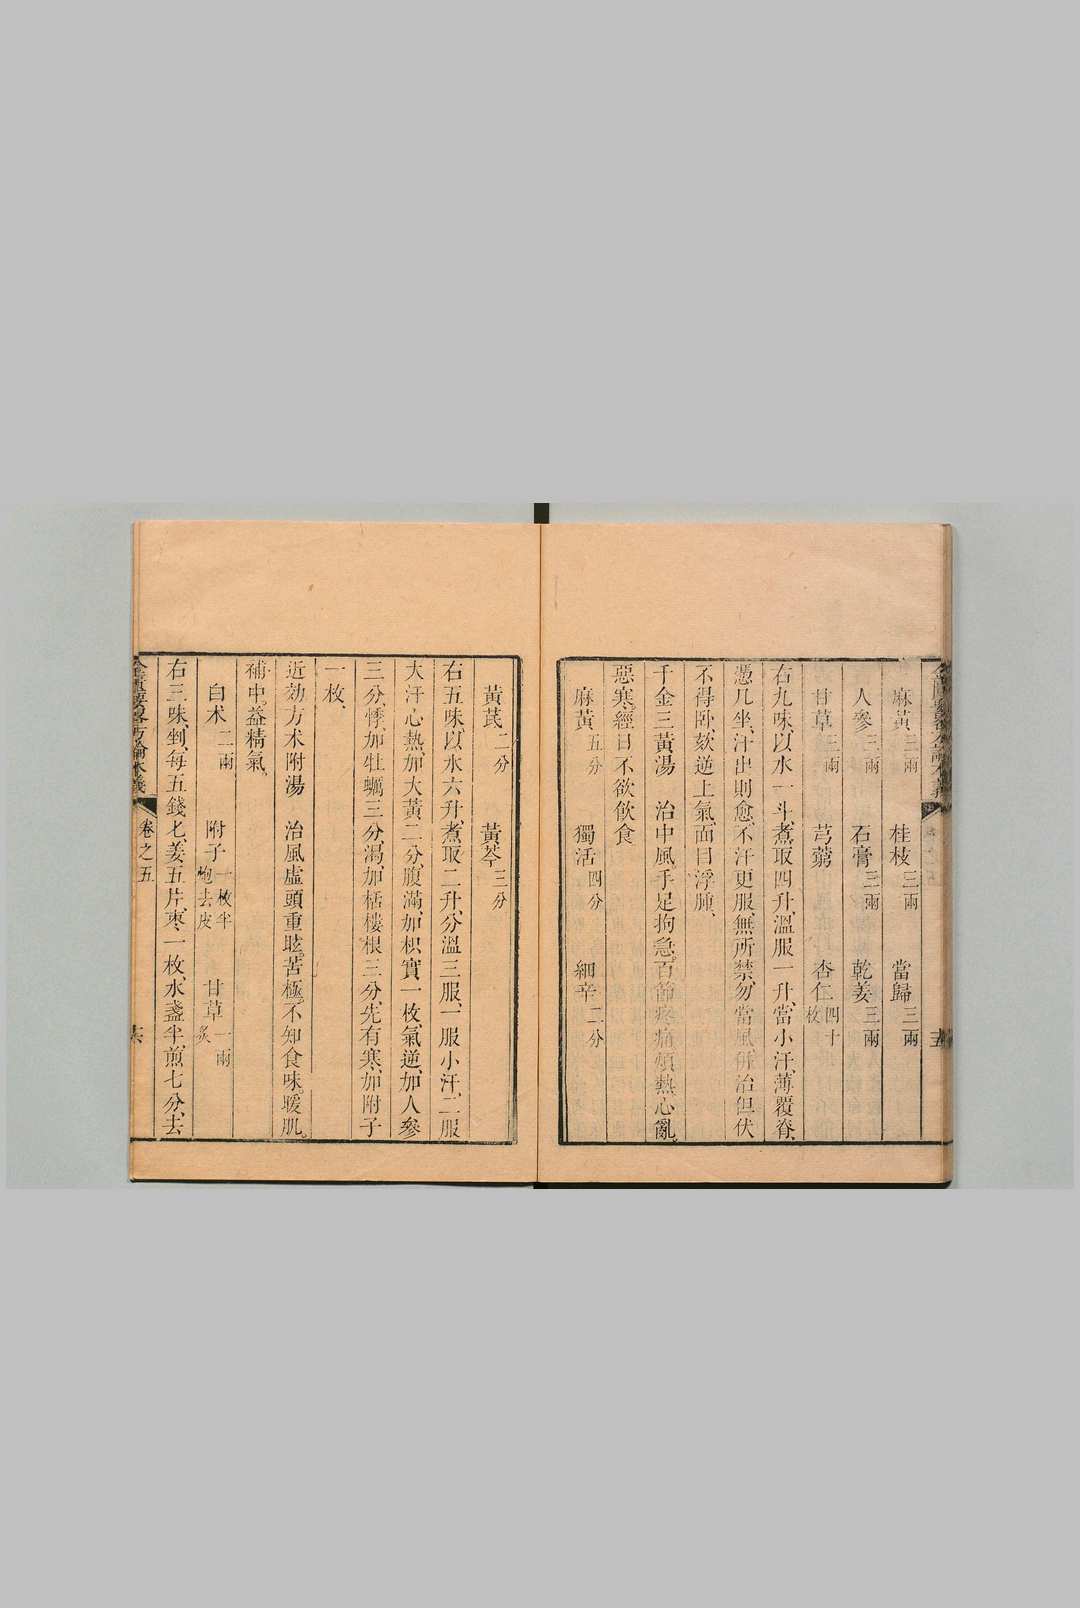 麻黃三兩 桂枝三兩 當歸三兩
人參三兩 石膏三兩 乾姜三兩
甘草三兩 芎藭 杏仁四十枚
右九味、以水一斗、煮取四升、溫服一升、當小汗、薄覆脊、
憑几坐、汗出則愈、不汗更服、無所禁、勿當風、併治但伏
不得臥、欬逆上氣、面目浮腫、
千金三黃湯 治中風手足拘急。百節疼痛。煩熱。心亂。
惡寒。經日不欲飲食
麻黃五分 獨活四分 細辛二分
黃芪二分 黃芩三分
右五味、以水六升、煮取二升、分溫三服、一服小汗、二服
大汗、心熱、加大黃二分、腹滿、加枳實一枚、氣逆、加人參
三分、悸、加牡蠣三分、渴、加栝樓根三分、先有寒、加附子
一枚、
近効方朮附湯 治風虛頭重眩。苦極。不知食味。暖肌。
補中。益精氣。
白朮二兩 附子一枚半炮去皮 甘草一兩炙
右三味、剉、每五錢匕、姜五片、棗一枚、水盞半、煎七分、去
金匱要畧方論本義 卷之五 十六